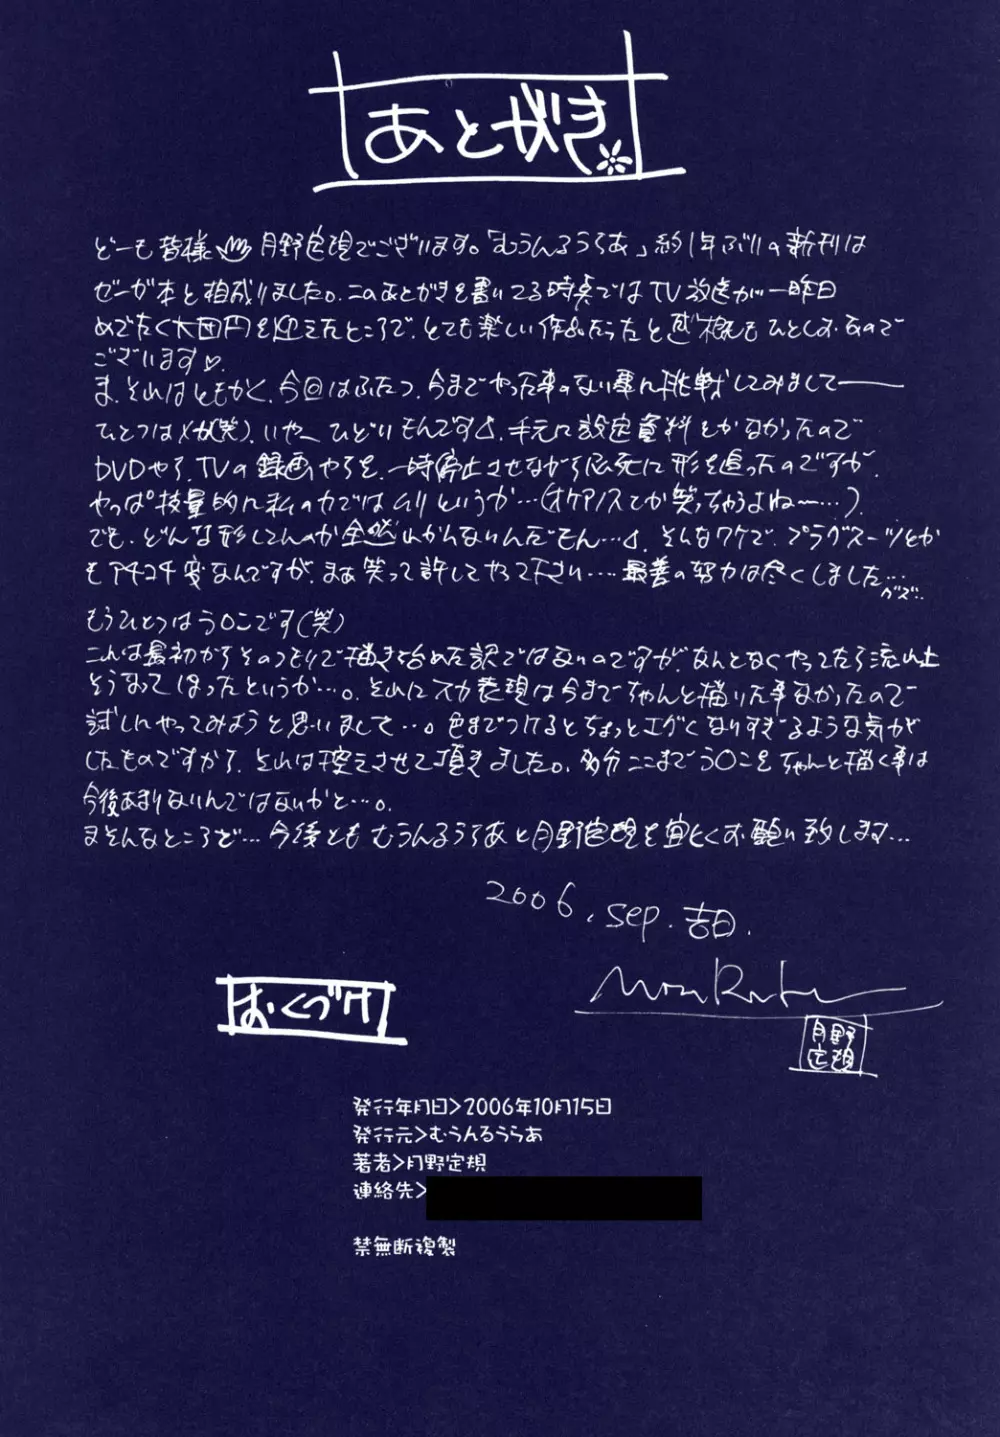 あとがき
どーも皆様 月野定規でございます。「むうんるうらあ」約1年ぶりの新刊は
ゼーガ本と相成りました。このあとがきを書いてる時点ではTV放送が一昨日
めでたく大団円を迎えたところで、とても楽しい作品だったと感慨もひとしおなので
ございます♡
ま、それはともかく、今回はふたつ、今までやった事のない事に挑戦してみまして――
ひとつはメカ(笑)、いやーひどいもんです、手元に設定資料とかなかったので
DVDやら、TVの録画やらを、一時停止させながら必死に形を追ったのですが、
やっぱ技量的に私の力ではムリというか…(オケアノスとか笑っちゃうよねー…)
でも、どんな形してんのか全然わかんないんだもん…、そんなワケで、プラグスーツとか
もアチコチ変なんですが、まぁ笑って許してやって下さい…最善の努力は尽くしました…
もうひとつはう〇こです(笑)
これは最初からそのつもりで描き始めた訳ではないのですが、なんとなくやってたら流れ上
そうなってしまったというか…。それにスカ表現は今までちゃんと描いた事なかったので
試しにやってみようと思いまして…。色までつけるとちょっとエグくなりすぎるような気が
したものですから、それは控えさせて頂きました。多分ここまでう〇こをちゃんと描く事は
今後あまりないんではないかと…。
まそんなところで…今後ともむうんるうらあと月野定規を宜しくお願い致します…
2006. sep. 吉日.
月野
定規
おくづけ
発行年月日>2006年10月15日
発行元>むうんるうらあ
著者>月野定規
連絡先>
禁無断複製